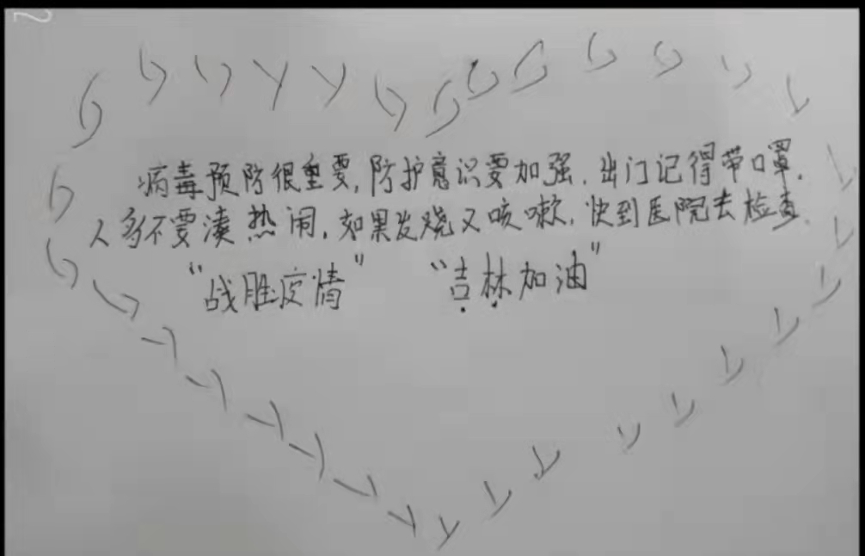 病毒预防很重要,防护意识要加强,出门记得带口罩.
人多不要凑热闹,如果发烧又咳嗽,快到医院去检查.
“战胜疫情” “吉林加油”